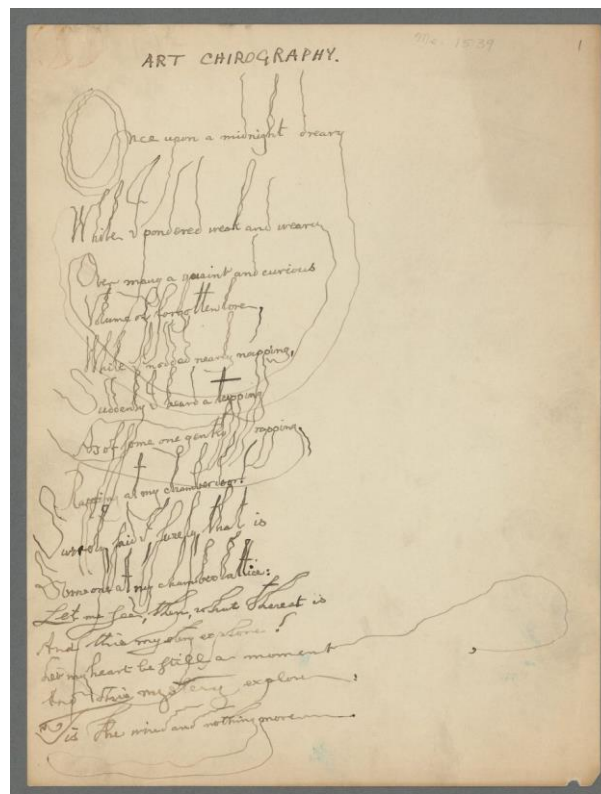 ART CHIROGRAPHY.
1
Once upon a midnight dreary
While I pondered weak and weary
Over many a quaint and curious
Volume of forgotten lore,
While I nodded nearly napping,
Suddenly I heard a tapping
As of some one gently rapping,
Rapping at my chamber door
Surely, said I, surely, that is
Some one at my chamber lattice:
Let me see, then, what thereat is
And this mystery explore!
Let my heart be still a moment,
And this mystery explore,
Tis the wind and nothing more